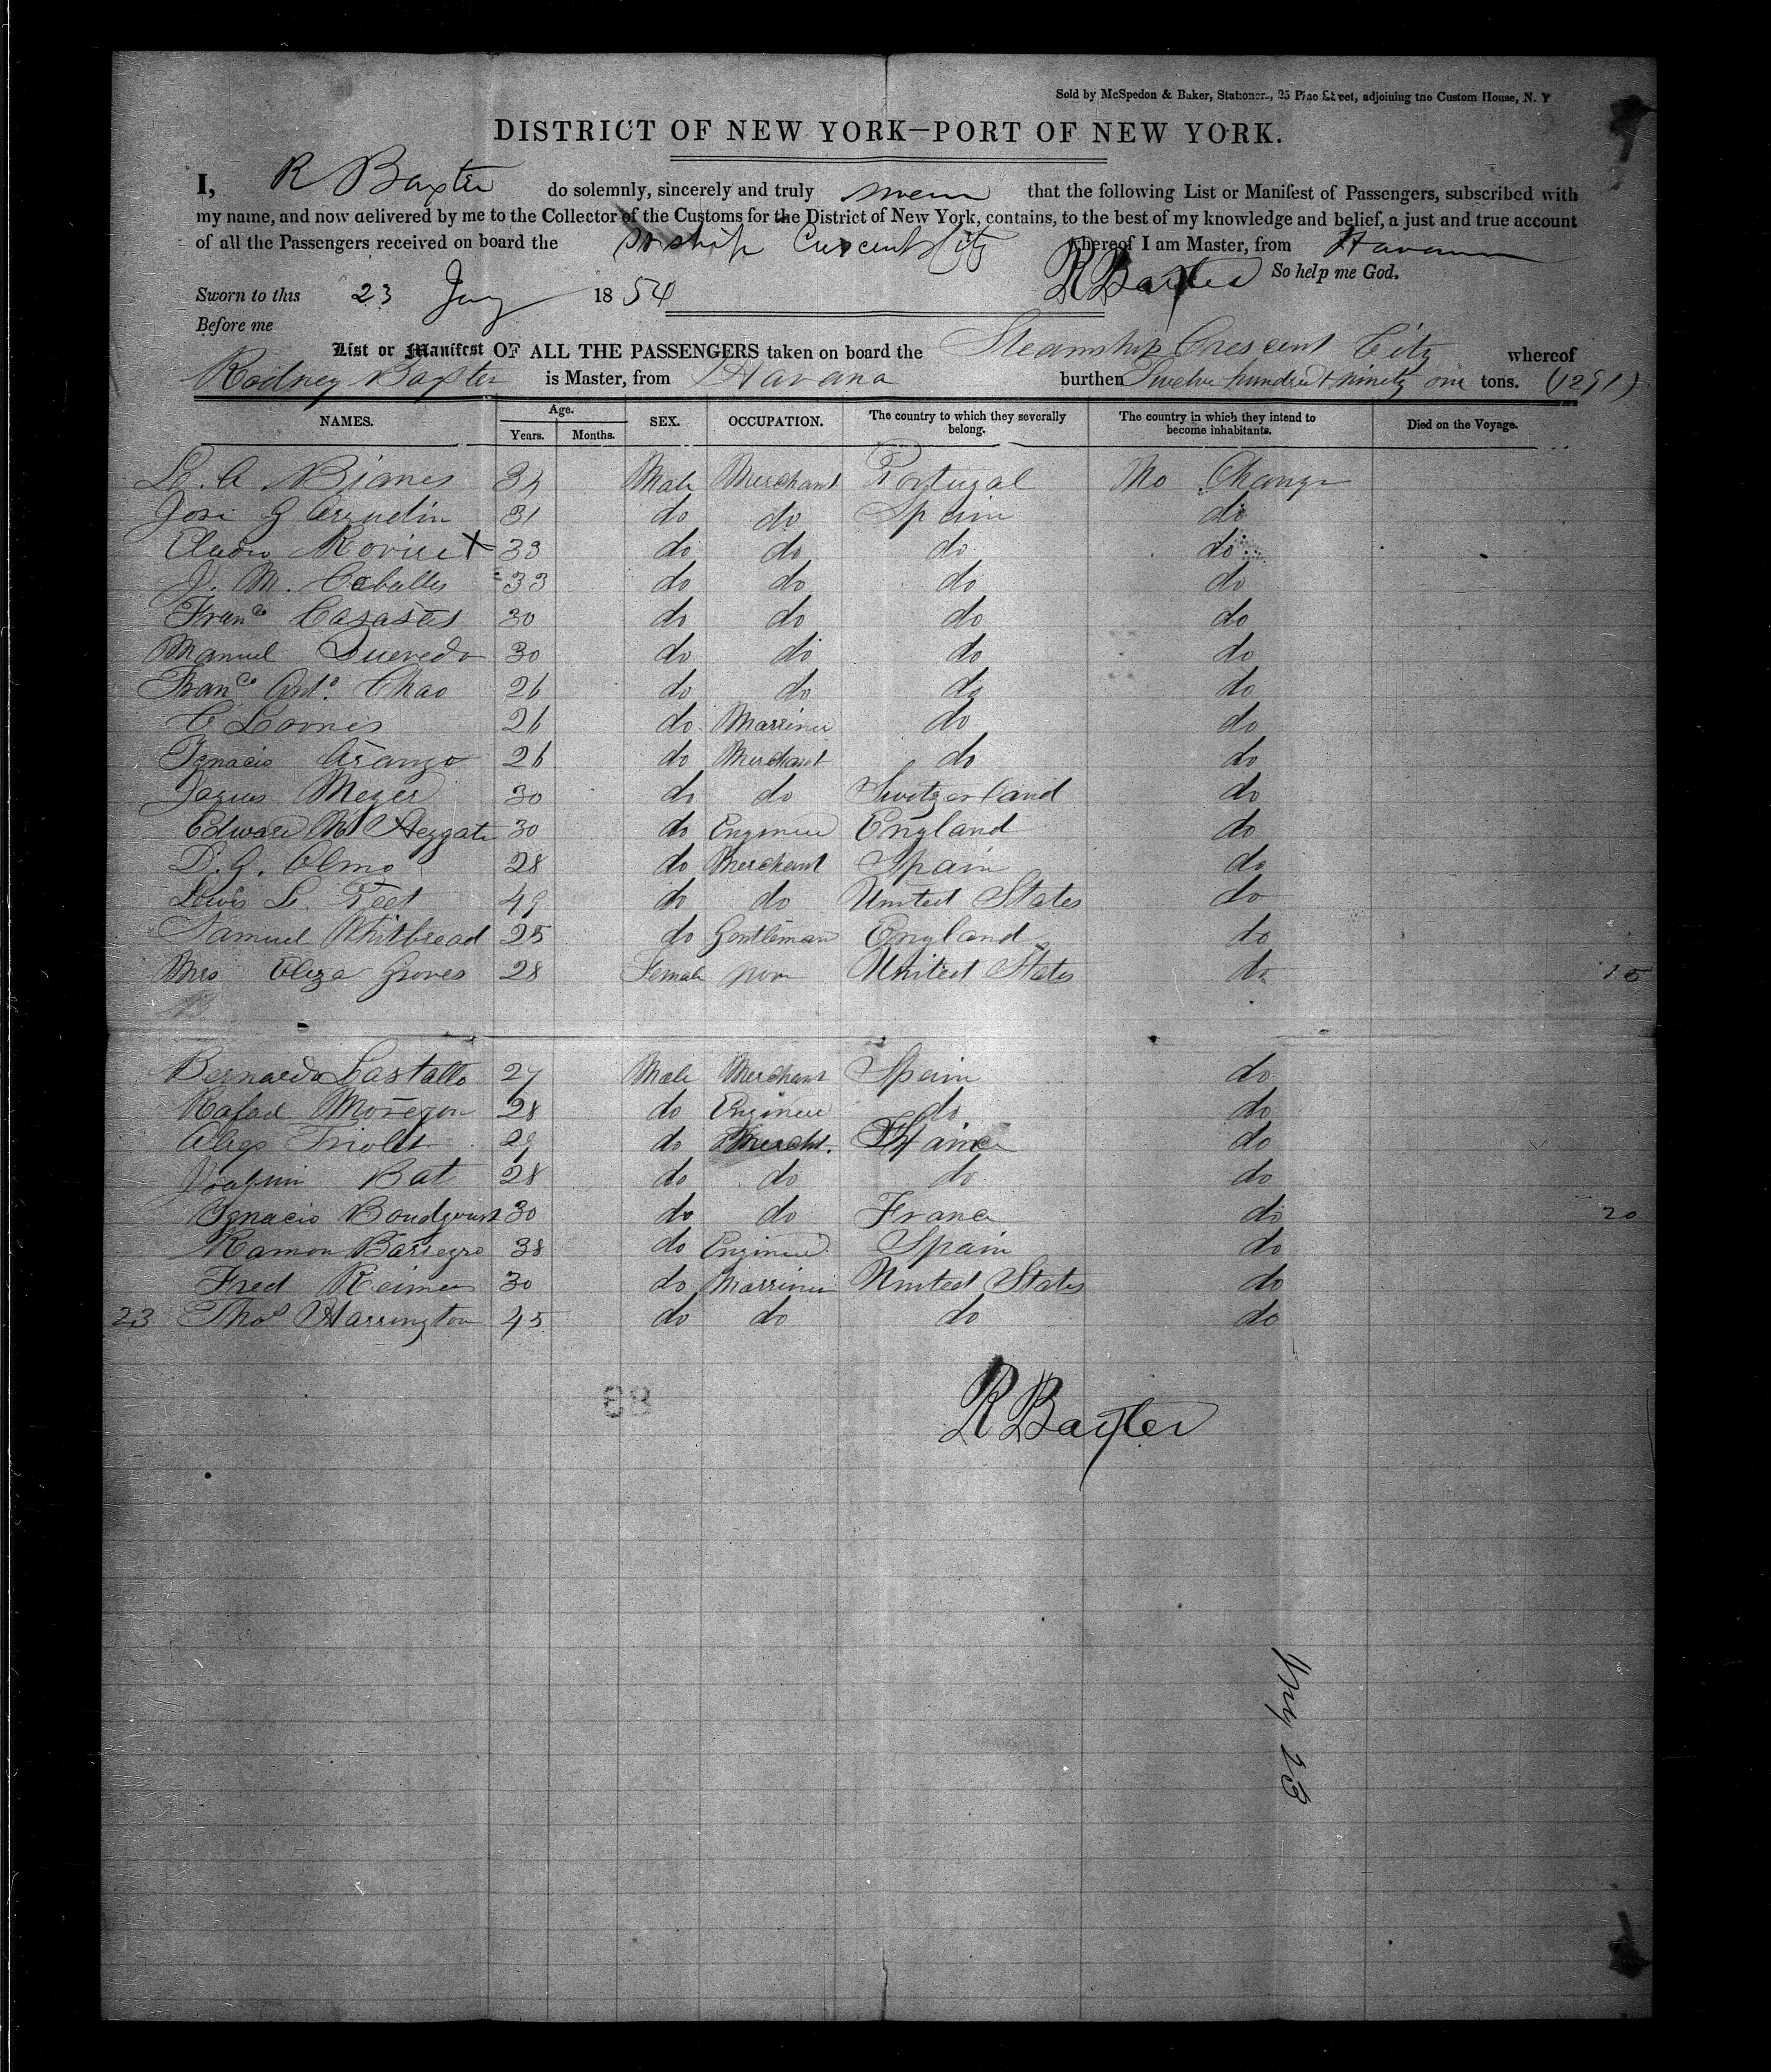 Sold by McSpedon & Baker, Stationers, 25 Pine Street, adjoining the Custom House, N. Y
DISTRICT OF NEW YORK—PORT OF NEW YORK.
I, R Baxter do solemnly, sincerely and truly swear that the following List or Manifest of Passengers, subscribed with
my name, and now delivered by me to the Collector of the Customs for the District of New York, contains, to the best of my knowledge and belief, a just and true account
of all the Passengers received on board the St ship Crescent City whereof I am Master, from Havana
R Baxter So help me God.
Sworn to this 23 1854
Before me
List or Manifest OF ALL THE PASSENGERS taken on board the Steamship Crescent City whereof
Rodney Baxter is Master, from Havana burthen Twelve hundred & ninety one tons. (1291)
NAMES. Age. SEX. OCCUPATION. The country to which they severally belong. The country in which they intend to become inhabitants. Died on the Voyage.
Years. Months.
Male Merchant Portugal No Change
Jose G 31 do do Spain do
X 33 do do do do
J. M. 33 do do do do
Franco Casasas 30 do do do do
Manuel Quevedo 30 do do do do
Franco Anto. Chao 26 do do do do
C Loones 26 do Marriner do do
Ignacio Arango 26 do Merchant do do
Meyer 30 do do Switzerland do
Edward 30 do Engineer England do
D. G. Olmo 28 do Merchant Spain do
Lewis L. 49 do do United States do
Samuel Whitbread 25 do Gentleman England do
Mrs Eliza Groves 28 Female United States do 15
Bernardo Castallo 27 Male Merchant Spain do
Rafael 28 do Engineer do do
Triolet 29 do Mercht. do
Joaquin Bat 28 do do do do
Ignacio 30 do do France do 20
Ramon 38 do Engineer Spain do
Fred Reimer 30 do Marriner United States do
23 Thos Harrington 45 do do do do
R Baxter
23